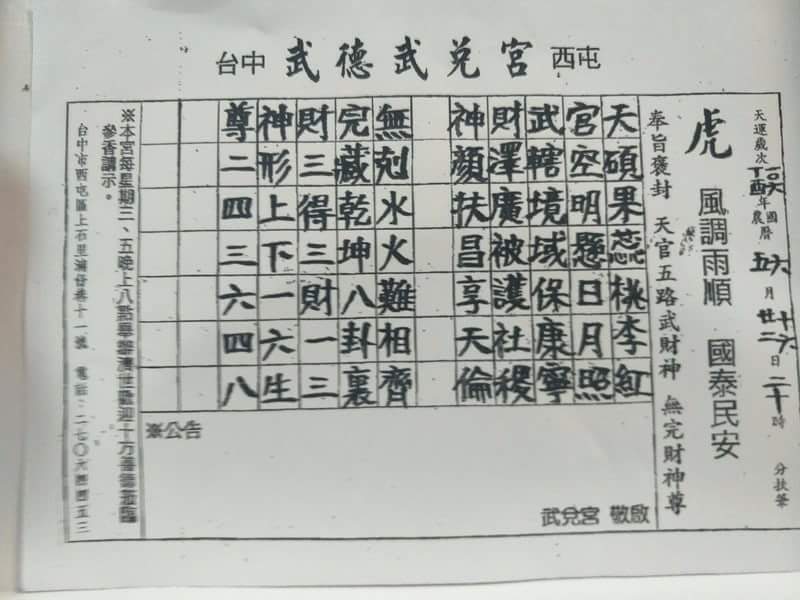 台中 武德武兌宮 西屯
天運歲次丁酉年 國曆 農曆 月 日 二十時 分扶筆
虎 風調雨順 國泰民安
奉旨褒封 天官五路武財神 無完財神尊
天碩果蕊桃李紅
宮空明懸日月照
武轄境域保康寧
財澤廣被護社稷
神顏扶昌享天倫
無剋水火難相齊
完藏乾坤八卦裏
財三得三財一三
神形上下一六生
尊二四三六四八
※公告
武兌宮 敬啟
※本宮每星期三、五晚上八點舉辦濟世歡迎十方善德蒞臨
參香請示。
台中市西屯區上石里 巷十一號 電話:二七〇六